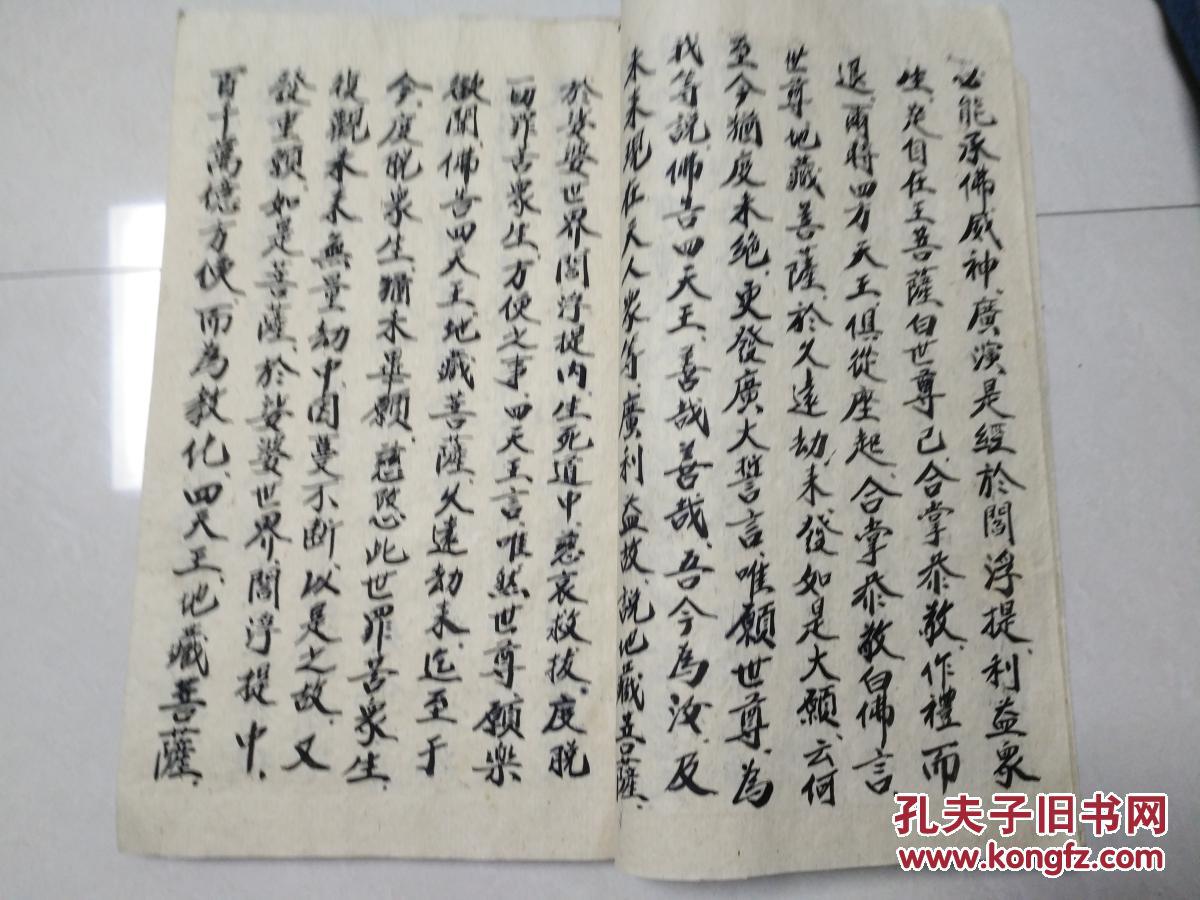 必能承佛威神、廣演是經於閻浮提、利益衆
生、定自在王菩薩、白世尊已合掌恭敬、作禮而
退、爾時四方天王、俱從座起、合掌恭敬白佛言、
世尊地藏菩薩、於久遠劫、来發如是大願、云何
至今猶度未绝、更發廣大誓言、唯願世尊、為
我等說、佛告四天王、善哉善哉、吾今為汝、及
未来現在天人衆等、廣利益故、說地藏菩薩、
於娑婆世界閻浮提内、生死道中、慈哀救拔、度脱
一切罪苦衆生、方便之事、四天王言、唯然世尊、願樂
欲聞、佛告四天王、地藏菩薩、久遠劫来、迄至于
今、度脱衆生、猶未畢願、慈愍此世罪苦衆生、
復觀未来無量劫中、因蔓不断、以是之故、又
發重願、如是菩薩、於娑婆世界、閻浮提中、
百千萬億方便、而為教化、四天王、地藏菩薩、
孔夫子旧书网
www.kongfz.com